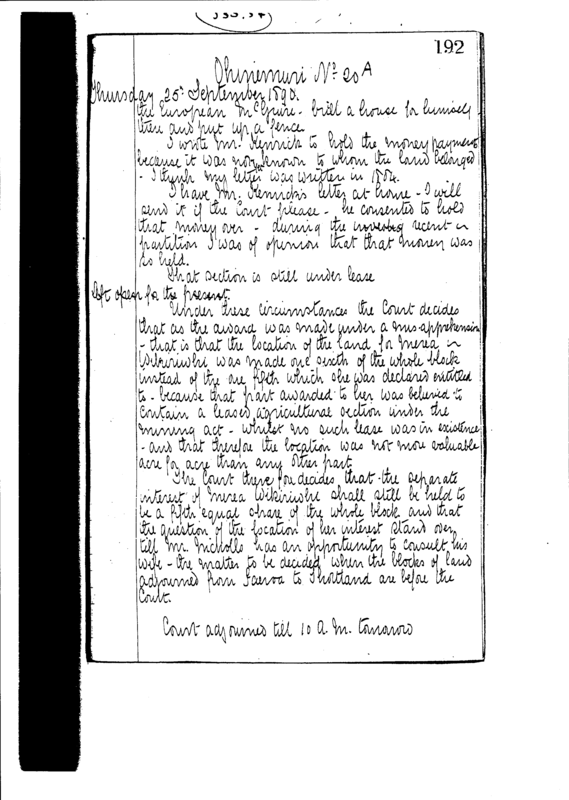 192
Ohinemuri No 20A
Thursday 25th September 1890.
the European McGuire - built a house for himself
there and put up a fence
I wrote Mr. Kenrick to hold the money payments
because it was not known to whom the land belonged
- I think my letter was written in 1884.
I have Mr. Kenrick's letter at home - I will
send it if the Court please - he consented to hold
that money over - during the recent
partition I was of opinion that that money was
so held.
That section is still under lease
left open for the present.
Under these circumstances the Court decides
that as the award was made under a misapprehension
- that is that the location of the land for Merea
Wikiriwhi was made one sixth of the whole block
instead of the one fifth which she was declared entitled
to - because that part awarded to her was believed to
contain a leased agricultural section under the
mining act - whilst no such lease was in existence
- and that therefore the location was not more valuable
acre for acre than any other part
The Court therefore decides that the separate
interest of Merea Wikiriwhi shall still be held to
be a fifth equal share of the whole block and that
the question of the location of her interest stand over
till Mr. Nicholls has an opportunity to consult his
wife - the matter to be decided when the blocks of land
adjourned from Paeroa to Shortland are before the
Court.
Court adjourned till 10 A.M. tomorrow